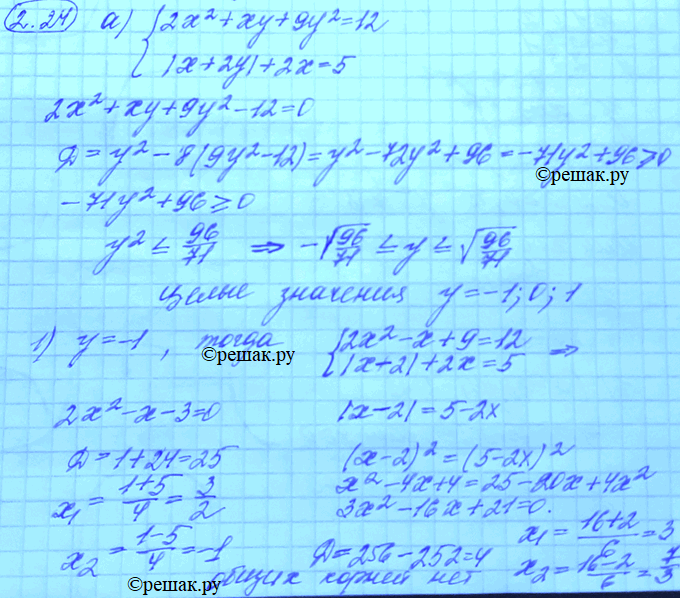 2.24 а) { 2x² + xy + 9y² = 12
|x + 2y| + 2x = 5
2x² + xy + 9y² - 12 = 0
D = y² - 8(9y² - 12) = y² - 72y² + 96 = -71y² + 96 ≥ 0
©решак.ру
-71y² + 96 ≥ 0
y² ≤ 96/71 ⇒ -√(96/71) ≤ y ≤ √(96/71)
Целые значения y = -1; 0; 1
1) y = -1, тогда { 2x² - x + 9 = 12
|x + 2| + 2x = 5 ⇒
©решак.ру
2x² - x - 3 = 0 |x - 2| = 5 - 2x
D = 1 + 24 = 25 (x - 2)² = (5 - 2x)²
x² - 4x + 4 = 25 - 20x + 4x²
x₁ = (1+5)/4 = 3/2 3x² - 16x + 21 = 0.
x₂ = (1-5)/4 = -1 D = 256 - 252 = 4 x₁ = (16+2)/6 = 3
общих корней нет x₂ = (16-2)/6 = 7/3
©решак.ру